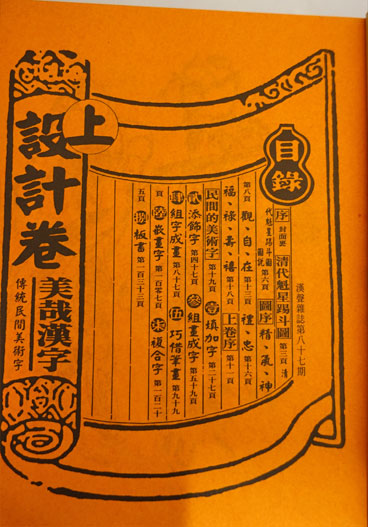 漢聲雜誌第八十七期
目錄
序 封面 清代魁星踢斗圖 第三頁 清
代魁星踢斗圖 圖說 第六頁 圖序 精、氣、神
第八頁 觀、自、在 第十二頁 禮、忠 第十六頁
福、祿、壽、禧 第十八頁 上卷序 第十一頁
民間的美術字 第十九頁 壹 填加字 第二十七頁
貳 添飾字 第四十七頁 叁 組畫成字 第五十九頁
肆 組字成畫 第八十七頁 伍 巧借筆畫 第九十九
頁 陸 嵌畫字 第一百零七頁 柒 複合字 第一百二十
五頁 捌 板書 第一百三十三頁
上
設計卷
美哉漢字
傳統民間美術字